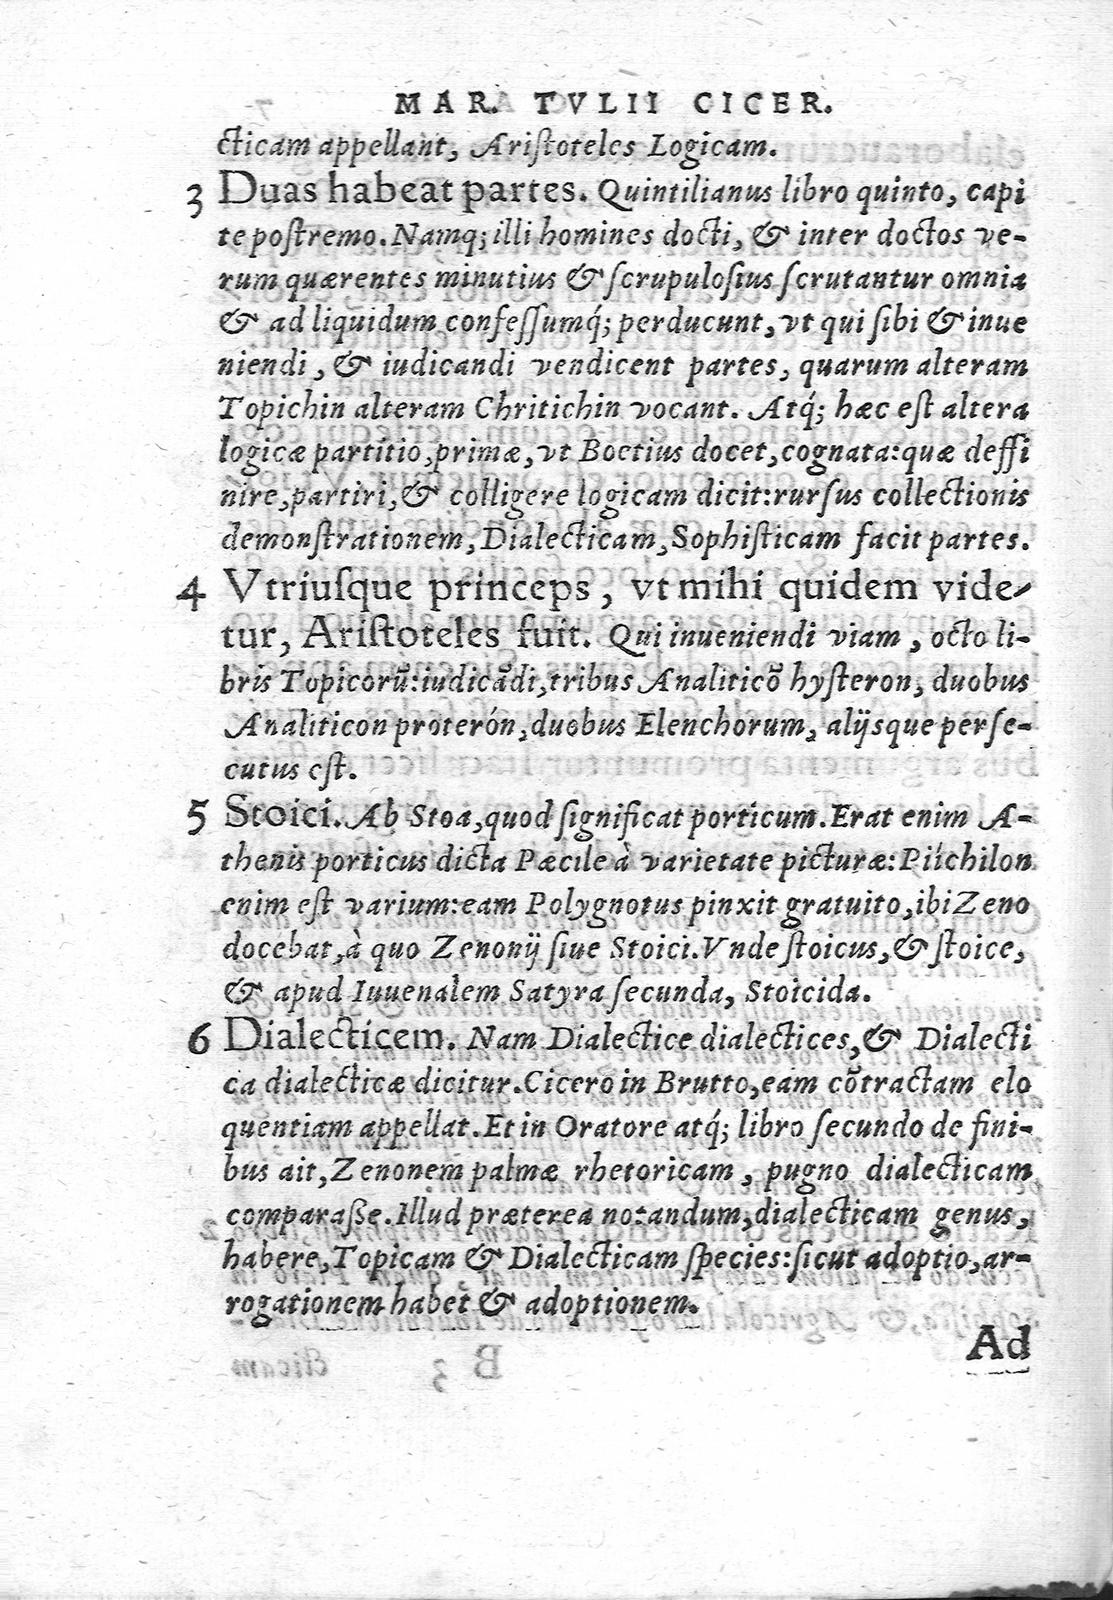 MAR. TVLII CICER.
cticam appellant, Ariſtoteles Logicam.
3 Duas habeat partes. Quintilianus libro quinto, capi
te poſtremo. Namq; illi homines docti, & inter doctos ve-
rum quærentes minutius & ſcrupuloſius ſcrutantur omnia
& ad liquidum confeſſumq́; perducunt, vt qui ſibi & inue
niendi, & iudicandi vendicent partes, quarum alteram
Topichin alteram Chritichin vocant. Atq́; hæc eſt altera
logicæ partitio, primæ, vt Boetius docet, cognata: quæ deffi
nire, partiri, & colligere logicam dicit: rurſus collectionis
demonſtrationem, Dialecticam, Sophiſticam facit partes.
4 Vtriuſque princeps, vt mihi quidem vide-
tur, Ariſtoteles fuit. Qui inueniendi viam, octo li-
bris Topicorũ: iudicãdi, tribus Analiticõ hyſteron, duobus
Analiticon proterón, duobus Elenchorum, alijsque perſe-
cutus eſt.
5 Stoici. Ab Stoa, quod ſignificat porticum. Erat enim A-
thenis porticus dicta Pæcile à varietate picturæ: Piíchilon
enim eſt varium: eam Polygnotus pinxit gratuito, ibi Zeno
docebat, à quo Zenonij ſiue Stoici. Vnde ſtoicus, & ſtoice,
& apud Iuuenalem Satyra ſecunda, Stoicida.
6 Dialecticem. Nam Dialectice dialectices, & Dialecti
ca dialecticæ dicitur. Cicero in Brutto, eam cõtractam elo
quentiam appellat. Et in Oratore atq́; libro ſecundo de fini-
bus ait, Zenonem palmæ rhetoricam, pugno dialecticam
comparaße. Illud præterea notandum, dialecticam genus,
habere, Topicam & Dialecticam ſpecies: ſicut adoptio, ar-
rogationem habet & adoptionem.
Ad